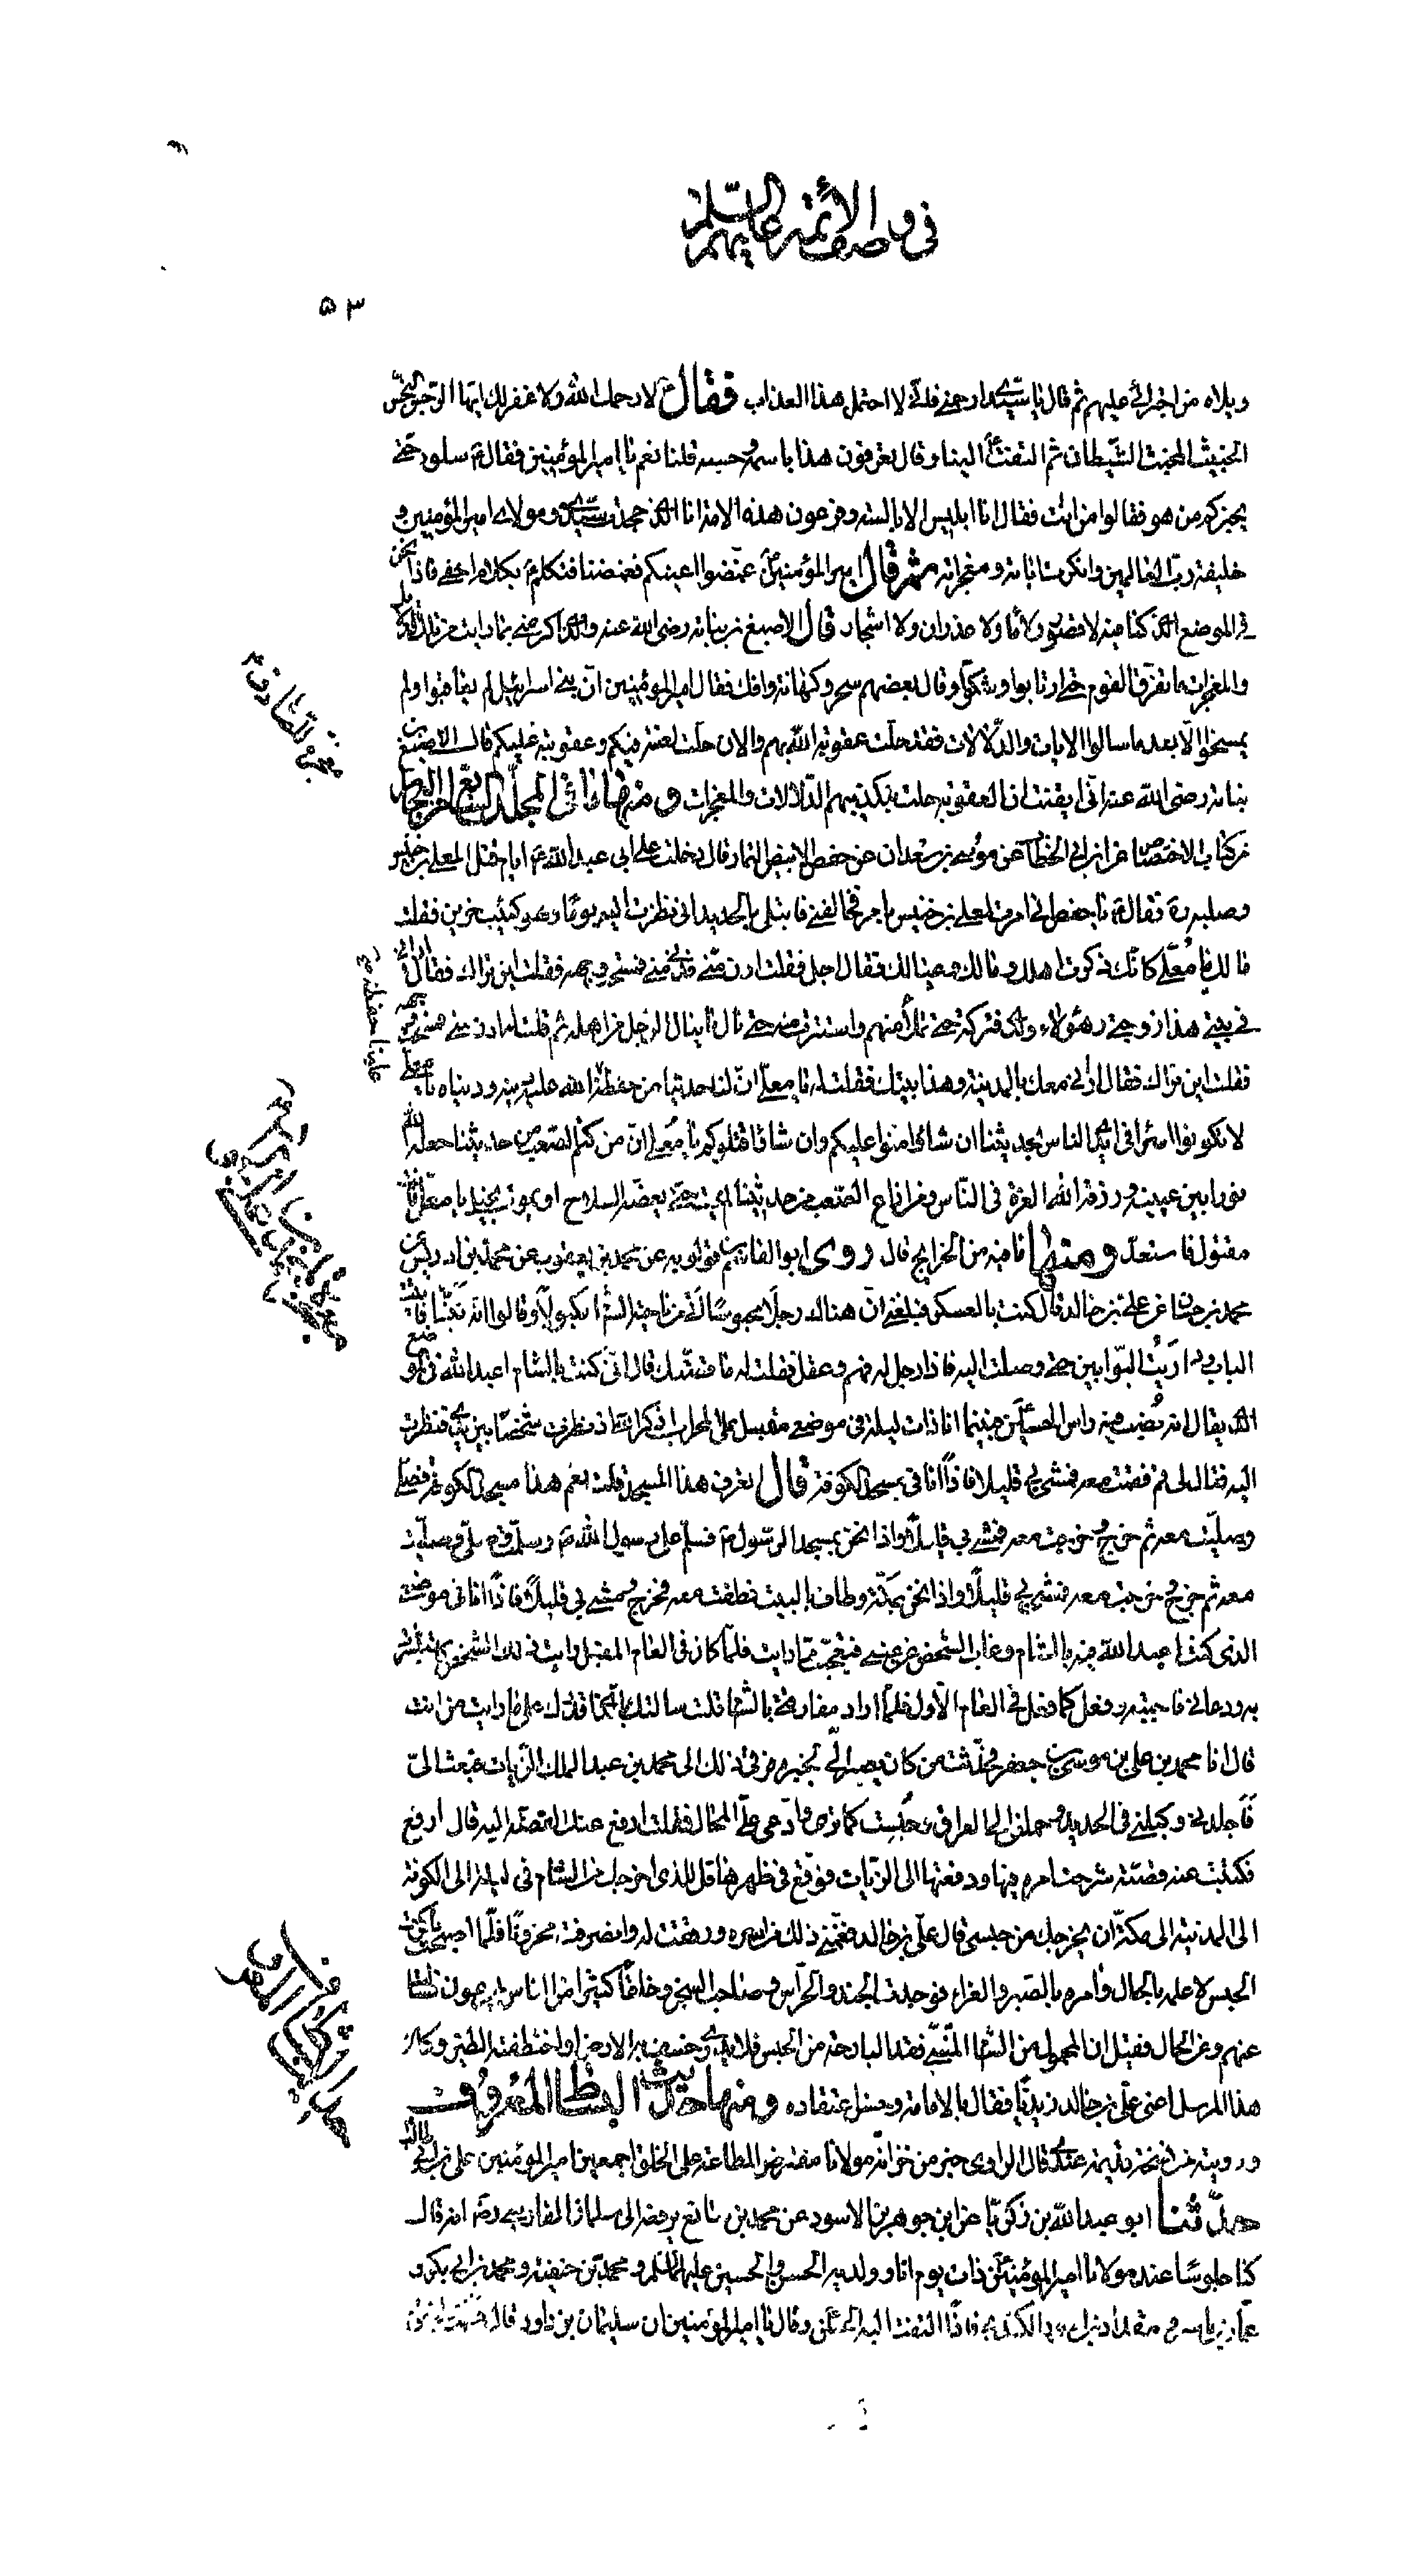 في وصف الأئمة عليهم السلم
٥٣
ويلاه من اجترائي عليهم ثم قال يا سيدي ارحمني فاني لا احتمل هذا العذاب فقال لا رحمك الله ولا غفر لك ايها الرجس النجس
الخبيث المخبث الشيطان ثم التفت الينا وقال تعرفون هذا باسمه وجسمه قلنا نعم يا امير المؤمنين فقال سلوه حتى
يخبركم من هو فقالوا من انت فقال انا ابليس الابالسة وفرعون هذه الامة انا الذي جحدت سيدي ومولاي امير المؤمنين و
خليفة رب العالمين وانكرت اياته ومعجزاته ثم قال امير المؤمنين غمضوا اعينكم فغمضنا فتكلم بكلام اخفى فاذا نحن
في الموضع الذي كنا فيه لا قصور ولا ماء ولا غدران ولا اشجار قال الاصبغ بن نباتة رضي الله عنه والذي اكرمني بما رايت من تلك الدلائل
والمعجزات ما تفرق القوم حتى ارتابوا وشكوا وقال بعضهم سحر وكهانة وافك فقال امير المؤمنين ان بني اسرائيل لم يعاقبوا ولم
يمسخوا الا بعد ما سالوا الايات والدلالات فقد حلت عقوبة الله بهم والان حلت لعنته فيكم وعقوبته عليكم قال الاصبغ بن
نباتة رضي الله عنه اني ايقنت ان العقوبة حلت بتكذيبهم الدلالات والمعجزات ومنها ما في المجلد السابع من البحار
من كتاب الاختصاص عن ابن ابي الخطاب عن موسى بن سعدان عن حفص الابيض التمار قال دخلت على ابي عبد الله ايام قتل المعلى بن خنيس
وصلبه ره فقال يا حفص اني امرت المعلى بن خنيس بامر فخالفني فابتلى بالحديد اني نظرت اليه يوما وهو كئيب حزين فقلت
مالك يا معلى كانك ذكرت اهلك ومالك وعيالك فقال اجل فقلت ادن مني فدنى مني فمسحت وجهه فقلت اين تراك فقال اراني
في بيتي هذا زوجتي وهؤلاء ولدي فتركته حتى تملأ منهم واستترت منه حتى نال ما ينال الرجل من اهله ثم قلت له ادن مني فمسحت وجهه
فقلت اين تراك فقال اراني معك بالمدينة وهذا بيتك فقلت له يا معلى ان لنا حديثا من حفظه علينا حفظ الله عليه دينه ودنياه يا معلى
لا تكونوا اسراء في ايدي الناس بحديثنا ان شاؤا امنوا عليكم وان شاؤا قتلوكم يا معلى ان من كتم الصعب من حديثنا جعله الله
نورا بين عينيه ورزقه الله العزة في الناس ومن اذاع الصعب من حديثنا لم يمت حتى يعضه السلاح او يموت بخيل يا معلى فانت
مقتول فاستعد ومنها ما فيه من الخرايج قال روى ابو القاسم بن قولويه عن محمد بن يعقوب عن محمد بن ادريس عن
محمد بن حسان عن علي بن خالد قال كنت بالعسكر فبلغني ان هناك رجلا محبوسا اتي من ناحية الشام مكبولا وقالوا انه تنبأ فاتيت
الباب وداريت البوابين حتى وصلت اليه فاذا رجل له فهم وعقل فقلت له ما قصتك قال اني كنت بالشام اعبد الله في الموضع
الذي يقال انه نصب فيه راس الحسين فبينما انا ذات ليلة في موضعي مقبل على المحراب اذكر الله اذ نظرت شخصا بين يدي فنظرت
اليه فقال لي قم فقمت معه فمشى بي قليلا فاذا انا في مسجد الكوفة قال تعرف هذا المسجد قلت نعم هذا مسجد الكوفة فصلى
وصليت معه ثم خرج وخرجت معه فمشى بي قليلا واذا نحن بمسجد الرسول فسلم على رسول الله وسلمت وصلى وصليت
معه ثم خرج وخرجت معه فمشى بي قليلا واذا نحن بمكة وطاف بالبيت فطفت معه فخرج ومشى بي قليلا فاذا انا في موضعي
الذي كنت اعبد الله فيه بالشام وغاب الشخص عن عيني فتعجبت مما رايت فلما كان في العام المقبل رايت ذلك الشخص فاستبشرت
به ودعاني فاجبته وفعل كما فعل في العام الاول فلما اراد مفارقتي بالشام قلت سالتك بالذي اقدرك على ما رايت من انت
قال انا محمد بن علي بن موسى بن جعفر فحدثت من كان يصير الي بخبره فرقى ذلك الى محمد بن عبد الملك الزيات فبعث الي
فاخذني وكبلني في الحديد وحملني الى العراق وحبست كما ترى وادعى علي المحال فقلت ارفع عنك القصة اليه قال ارفع
فكتبت عنه قصته شرحت امره فيها ودفعتها الى الزيات فوقع في ظهرها قل للذي اخرجك من الشام في ليلة الى الكوفة
الى المدينة الى مكة ان يخرجك من حبسي قال علي بن خالد فغمني ذلك من امره ورققت له وانصرفت محزونا فلما اصبحت باكرت
الحبس لاعلمه بالحال وامره بالصبر والعزاء فوجدت الجند والحراس وصاحب السجن وخلقا كثيرا من الناس يهرعون فسالت
عنهم وعن الحال فقيل ان المحمول من الشام المتنبي فقد البارحة من الحبس فلا يدري خسف به الارض او اختطفته الطير وكان
هذا المرسل اعني علي بن خالد زيديا فقال بالامامة وحسن اعتقاده ومنها حديث البساط المعروف
ورويته من نسخة قديمة عندي قال الراوي خبر من خزانة مولانا مفترض الطاعة على الخلق اجمعين امير المؤمنين علي بن ابي طالب
حدثنا ابو عبد الله بن زكريا عن ابن جوهر بن الاسود عن محمد بن سائغ يرفعه الى سلمان الفارسي رضه انه قال
كنا جلوسا عند مولانا امير المؤمنين ذات يوم انا وولديه الحسن والحسين عليهما السلم ومحمد بن حنفية ومحمد بن ابي بكر و
عمار بن ياسر ومقداد بن اسود الكندي فاذا التفت اليه الحسن وقال يا امير المؤمنين ان سليمان بن داود قال
معجزة للصادق
علينا حفظ
حديث البساط المعروف